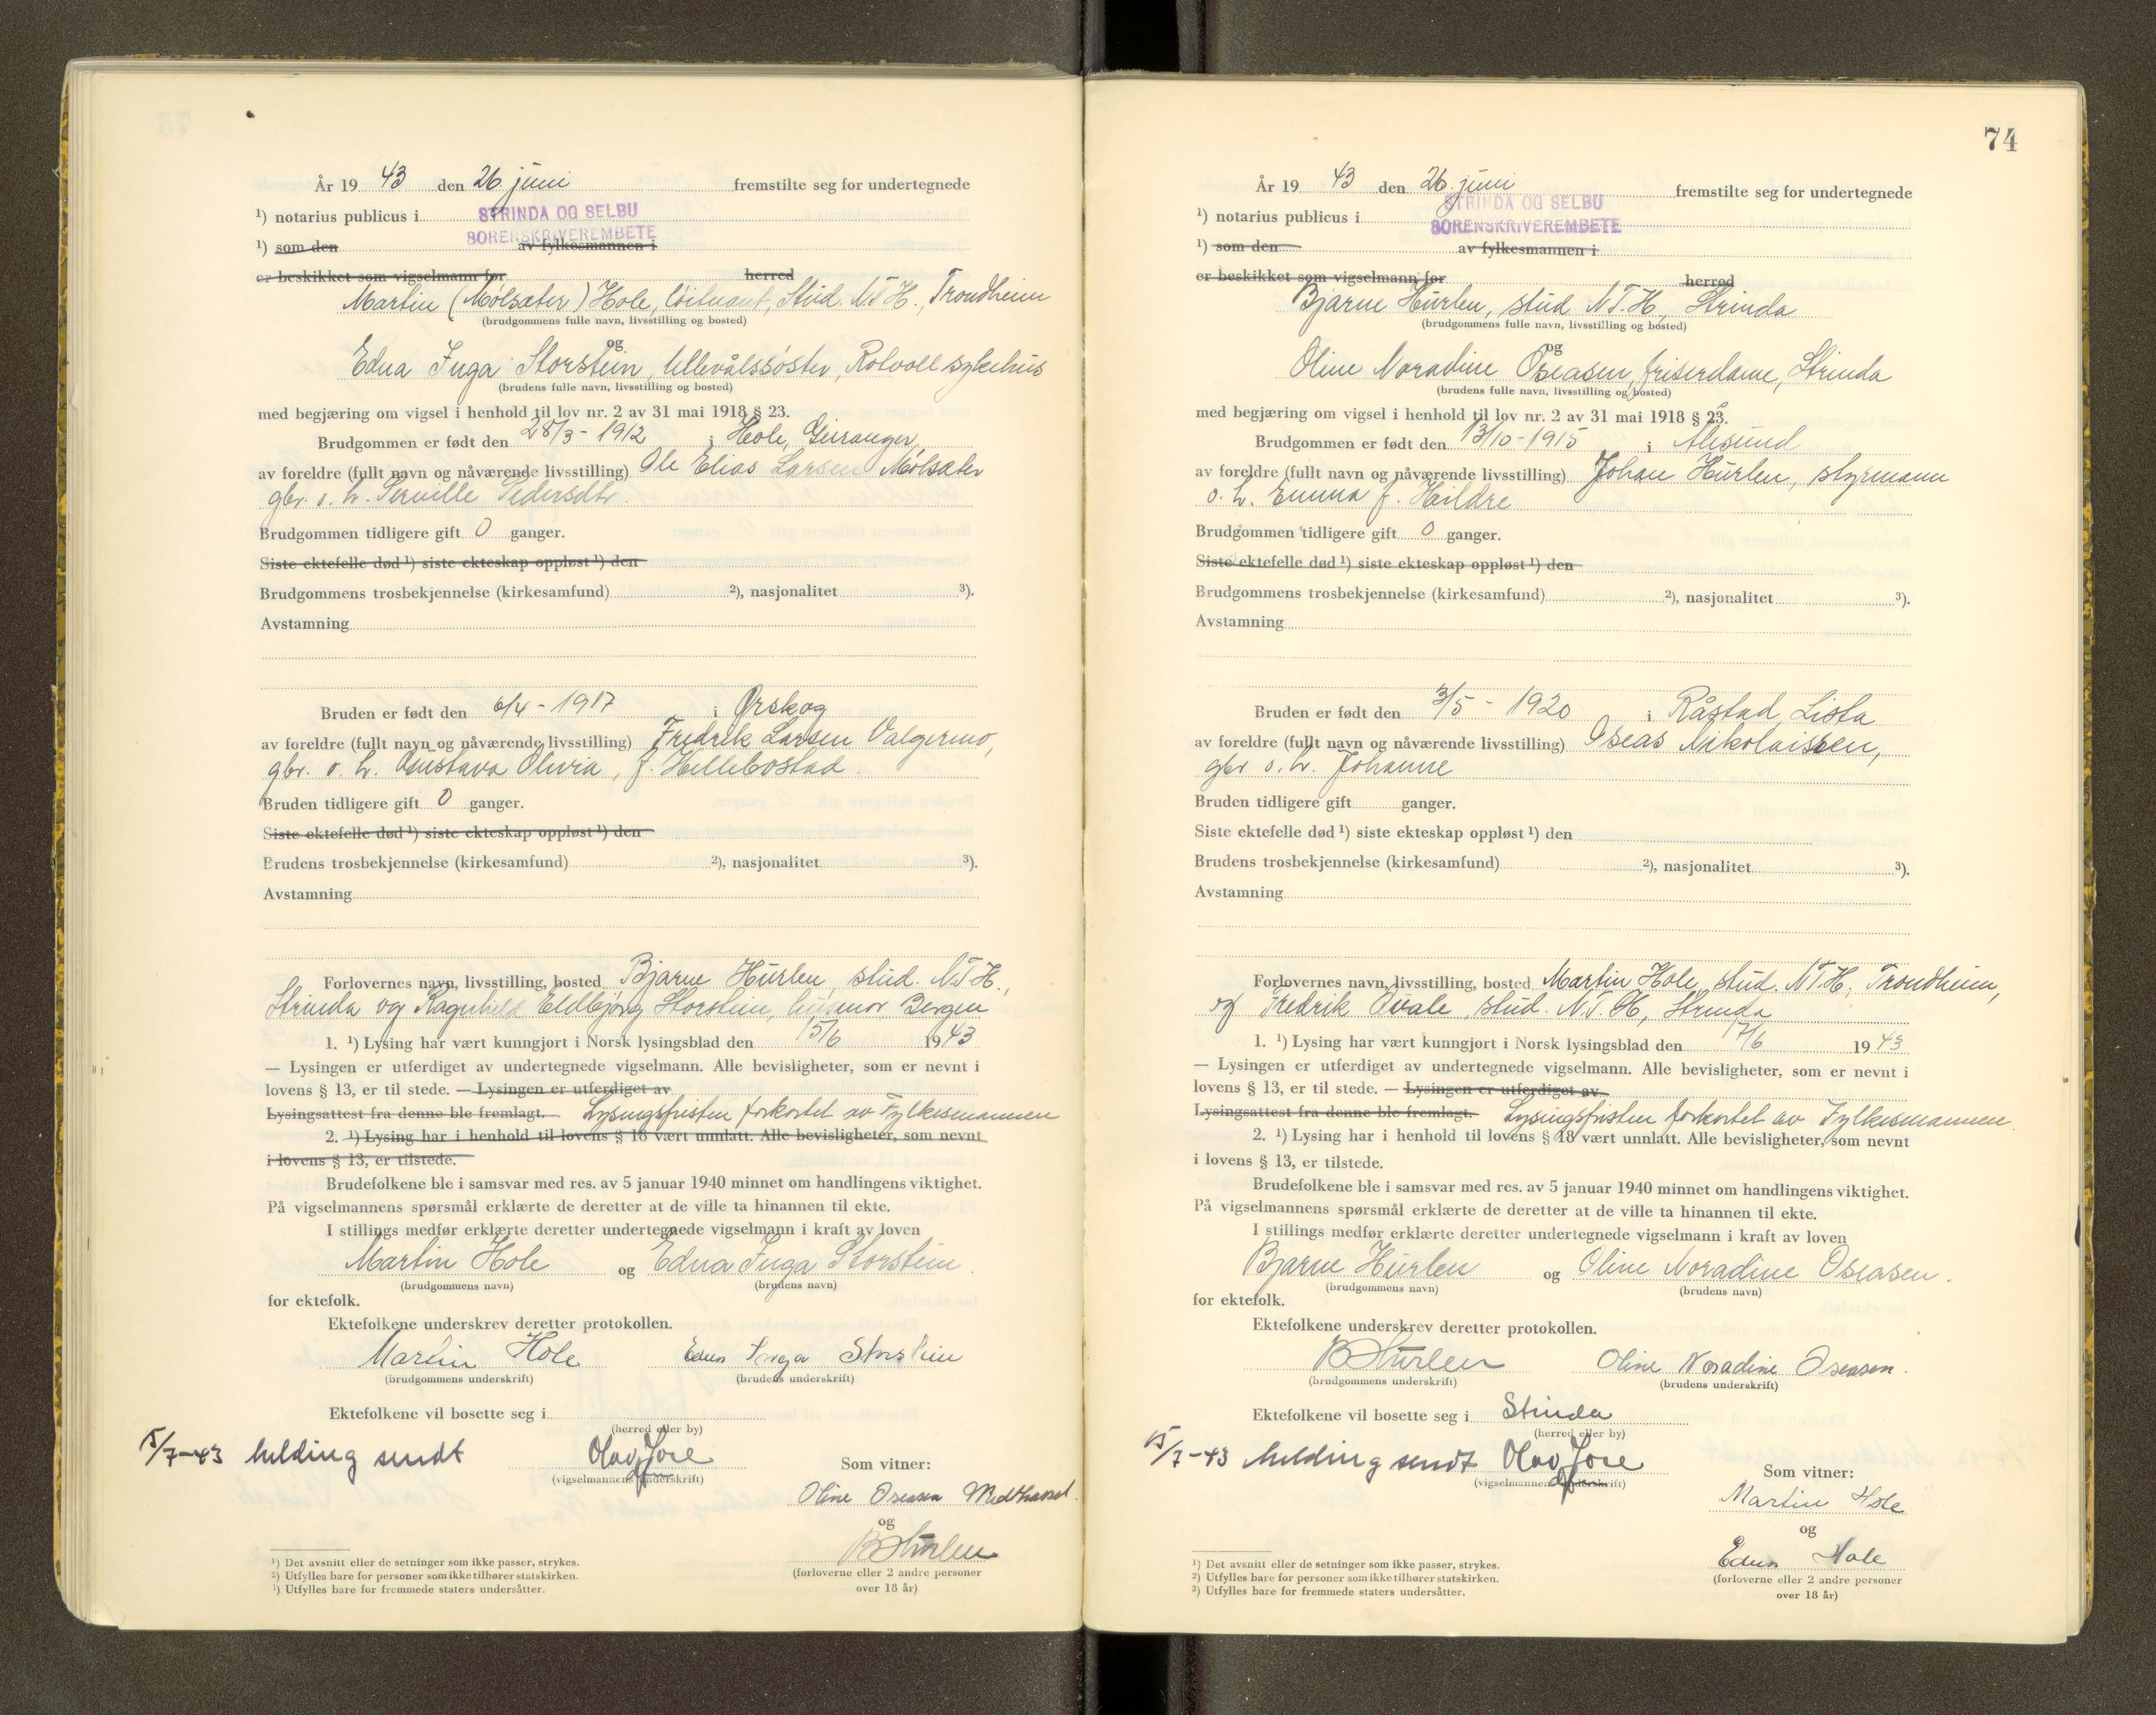 År 19 43 den 26. juni fremstilte seg for undertegnede
¹) notarius publicus i STRINDA OG SELBU
SORENSKRIVEREMBETE
¹) som den av fylkesmannen i
er beskikket som vigselmann for herred
Martin (Mölsæter) Hole, löitnant, Stud. N.T.H., Trondheim
(brudgommens fulle navn, livsstilling og bosted)
og
Edna Inga Storstein, Ullevålssöster, Rotvoll sykehus
(brudens fulle navn, livsstilling og bosted)
med begjæring om vigsel i henhold til lov nr. 2 av 31 mai 1918 § 23.
Brudgommen er født den 28/3 - 1912 i Hole, Geiranger
av foreldre (fullt navn og nåværende livsstilling) Ole Elias Larsen Mölsæter
gbr. o. h. Pedersdtr.
Brudgommen tidligere gift 0 ganger.
Siste ektefelle død ¹) siste ekteskap oppløst ¹) den
Brudgommens trosbekjennelse (kirkesamfund) ²), nasjonalitet ³).
Avstamning
Bruden er født den 6/4 - 1917 i Ørskog
av foreldre (fullt navn og nåværende livsstilling) Fredrik Larsen Valgermo,
gbr. o. h. Gustava Olivia, f. Hellebostad.
Bruden tidligere gift 0 ganger.
Siste ektefelle død ¹) siste ekteskap oppløst ¹) den
Brudens trosbekjennelse (kirkesamfund) ²), nasjonalitet ³).
Avstamning
Forlovernes navn, livsstilling, bosted Bjarne Hurlen, stud. N.T.H.,
Strinda og Ragnhild Eldbjørg Storstein, husmor, Bergen
1. ¹) Lysing har vært kunngjort i Norsk lysingsblad den 15/6 1943
— Lysingen er utferdiget av undertegnede vigselmann. Alle bevisligheter, som er nevnt i
lovens § 13, er til stede. — Lysingen er utferdiget av
Lysingsattest fra denne ble fremlagt. — Lysingsfristen forkortet av Fylkesmannen
2. ¹) Lysing har i henhold til lovens § 18 vært unnlatt. Alle bevisligheter, som nevnt
i lovens § 13, er tilstede.
Brudefolkene ble i samsvar med res. av 5 januar 1940 minnet om handlingens viktighet.
På vigselmannens spørsmål erklærte de deretter at de ville ta hinannen til ekte.
I stillings medfør erklærte deretter undertegnede vigselmann i kraft av loven
Martin Hole og Edna Inga Storstein.
(brudgommens navn) (brudens navn)
for ektefolk.
Ektefolkene underskrev deretter protokollen.
Martin Hole Edna Inga Storstein
(brudgommens underskrift) (brudens underskrift)
Ektefolkene vil bosette seg i
(herred eller by)
15/7-43 Melding sendt Olav Jore
(vigselmannens underskrift)
Som vitner:
Oline Oseasen
og
B Hurlen
(forloverne eller 2 andre personer
over 18 år)
¹) Det avsnitt eller de setninger som ikke passer, strykes.
²) Utfylles bare for personer som ikke tilhører statskirken.
³) Utfylles bare for fremmede staters undersåtter.
74
År 19 43 den 26. juni fremstilte seg for undertegnede
¹) notarius publicus i STRINDA OG SELBU
SORENSKRIVEREMBETE
¹) som den av fylkesmannen i
er beskikket som vigselmann for herred
Bjarne Hurlen, stud N.T.H., Strinda
(brudgommens fulle navn, livsstilling og bosted)
og
Oline Noradine Oseasen, friserdame, Strinda
(brudens fulle navn, livsstilling og bosted)
med begjæring om vigsel i henhold til lov nr. 2 av 31 mai 1918 § 23.
Brudgommen er født den 13/10 - 1915 i Ålesund
av foreldre (fullt navn og nåværende livsstilling) Johan Hurlen, styrmann
o. h. Emma f. Hildre
Brudgommen tidligere gift 0 ganger.
Siste ektefelle død ¹) siste ekteskap oppløst ¹) den
Brudgommens trosbekjennelse (kirkesamfund) ²), nasjonalitet ³).
Avstamning
Bruden er født den 3/5 - 1920 i Råstad, Lista
av foreldre (fullt navn og nåværende livsstilling) Oseas Nikolaissen,
gbr o. h. Johanne
Bruden tidligere gift ganger.
Siste ektefelle død ¹) siste ekteskap oppløst ¹) den
Brudens trosbekjennelse (kirkesamfund) ²), nasjonalitet ³).
Avstamning
Forlovernes navn, livsstilling, bosted Martin Hole, stud. N.T.H., Trondheim,
og Fredrik Ovale, stud. N.T.H., Strinda
1. ¹) Lysing har vært kunngjort i Norsk lysingsblad den 17/6 1943
— Lysingen er utferdiget av undertegnede vigselmann. Alle bevisligheter, som er nevnt i
lovens § 13, er til stede. — Lysingen er utferdiget av
Lysingsattest fra denne ble fremlagt. Lysingsfristen forkortet av Fylkesmannen.
2. ¹) Lysing har i henhold til lovens § 18 vært unnlatt. Alle bevisligheter, som nevnt
i lovens § 13, er tilstede.
Brudefolkene ble i samsvar med res. av 5 januar 1940 minnet om handlingens viktighet.
På vigselmannens spørsmål erklærte de deretter at de ville ta hinannen til ekte.
I stillings medfør erklærte deretter undertegnede vigselmann i kraft av loven
Bjarne Hurlen og Oline Noradine Oseasen.
(brudgommens navn) (brudens navn)
for ektefolk.
Ektefolkene underskrev deretter protokollen.
B Hurlen Oline Noradine Oseasen.
(brudgommens underskrift) (brudens underskrift)
Ektefolkene vil bosette seg i Strinda
(herred eller by)
15/7-43 Melding sendt Olav Jore
(vigselmannens underskrift)
Som vitner:
Martin Hole
og
Edna Hole
(forloverne eller 2 andre personer
over 18 år)
¹) Det avsnitt eller de setninger som ikke passer, strykes.
²) Utfylles bare for personer som ikke tilhører statskirken.
³) Utfylles bare for fremmede staters undersåtter.